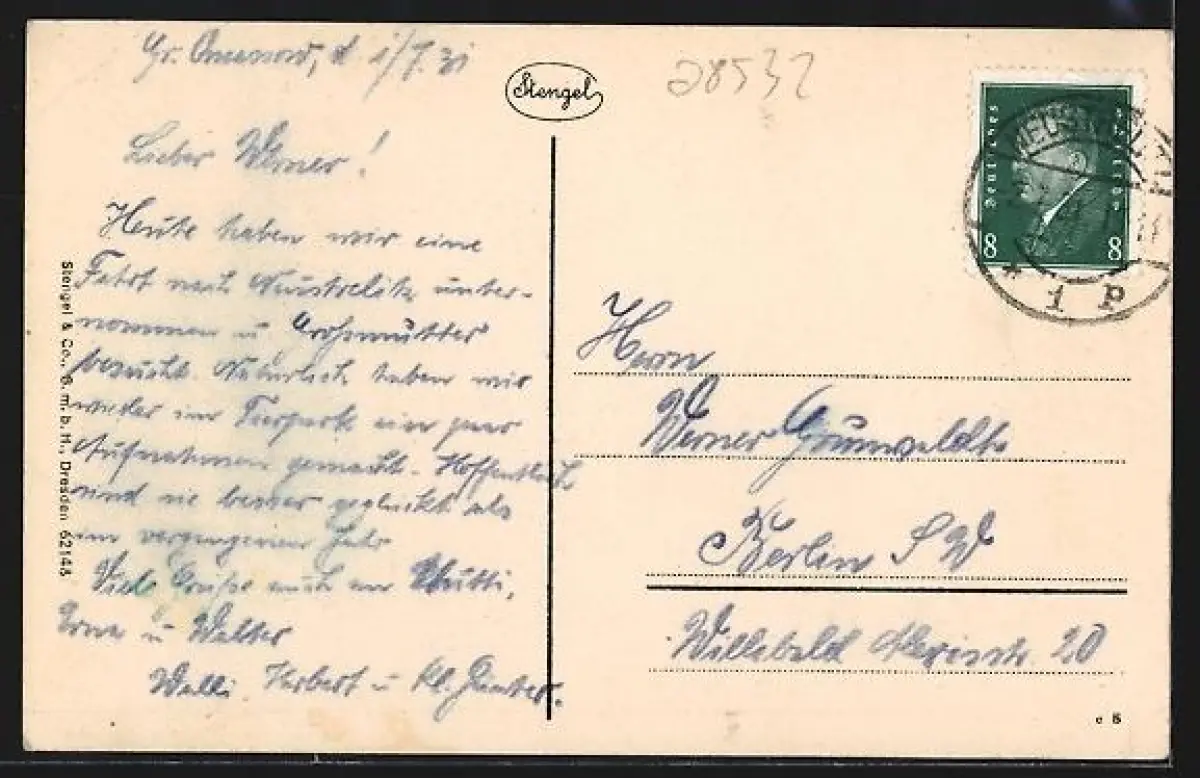 d. 1/7.31
Lieber Werner!
Heute haben wir eine
Fahrt nach Neustrelitz unter-
nommen u. Großmutter
besucht. Natürlich haben wir
wieder im Tierpark ein paar
Aufnahmen gemacht. Hoffentlich
sind sie besser geglückt als
im vergangenen Jahr
Viele Grüße auch an Mutti,
Erna u. Walter
Walli Herbert u. Kl. Günter.
Stengel & Co., G. m. b. H., Dresden 62148
Stengel
28532
Deutsches Reich
8 8
1 p
Herrn
Werner Grunwaldt
Berlin SW
Willibald Alexisstr. 20
c 8